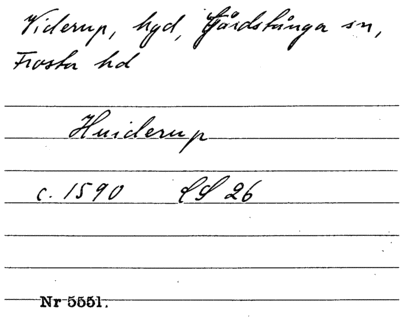 Viderup, hgd, Gårdstånga sn,
Frosta hd
Huiderup
c. 1590 LS 26
Nr 5551.